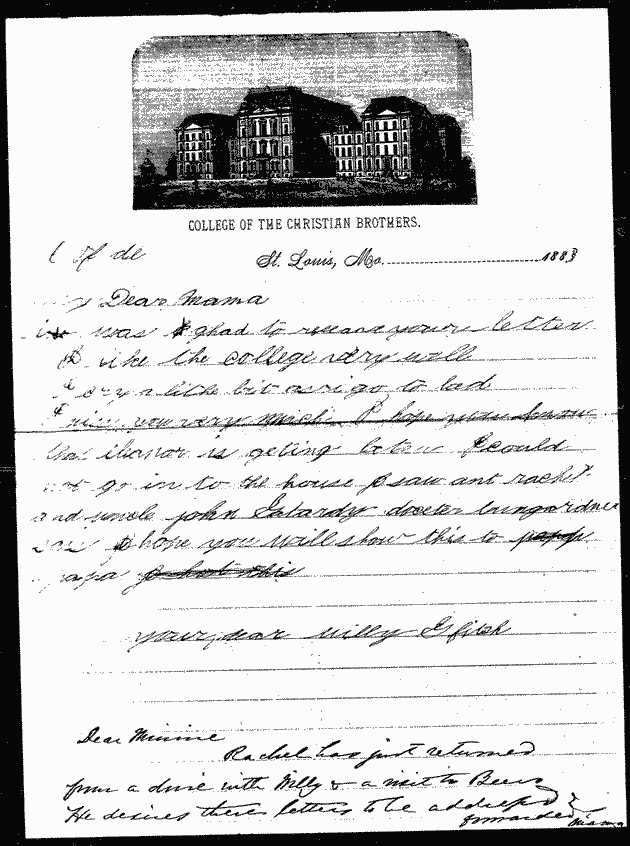 COLLEGE OF THE CHRISTIAN BROTHERS.
St. Louis, Mo. 1883
Dear Mama
was glad to your letter
like the college very well
cry a little bit as i go to bed
you very much I hope you know
is geting I could
not go in to the house I saw ant rachel
and uncle john Satardy docter bumgardner
I hope you will show this to papp
papa
your dear willy G fitch
Dear Minnie
Rachel has just returned
from a drive with Willy & a visit to Beers
He desires these letters to be addressed &
forwarded Mama